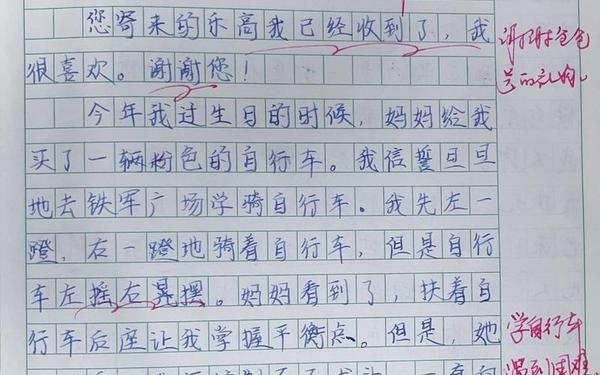 您寄来的乐高我已经收到了，我
很喜欢。谢谢您！
今年我过生日的时候，妈妈给我
买了一辆粉色的自行车。我信誓旦旦
地去铁军广场学骑自行车。我先左一
蹬，右一蹬地骑着自行车，但是自行
车左摇右晃摆。妈妈看到了，扶着自
行车后座让我掌握平衡点。但是，她
谢谢爸爸
送的礼物
学自行车
遇到困难